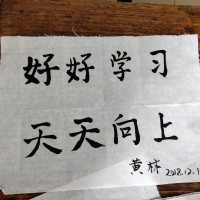 好好学习
天天向上
黄林
2018.12.1